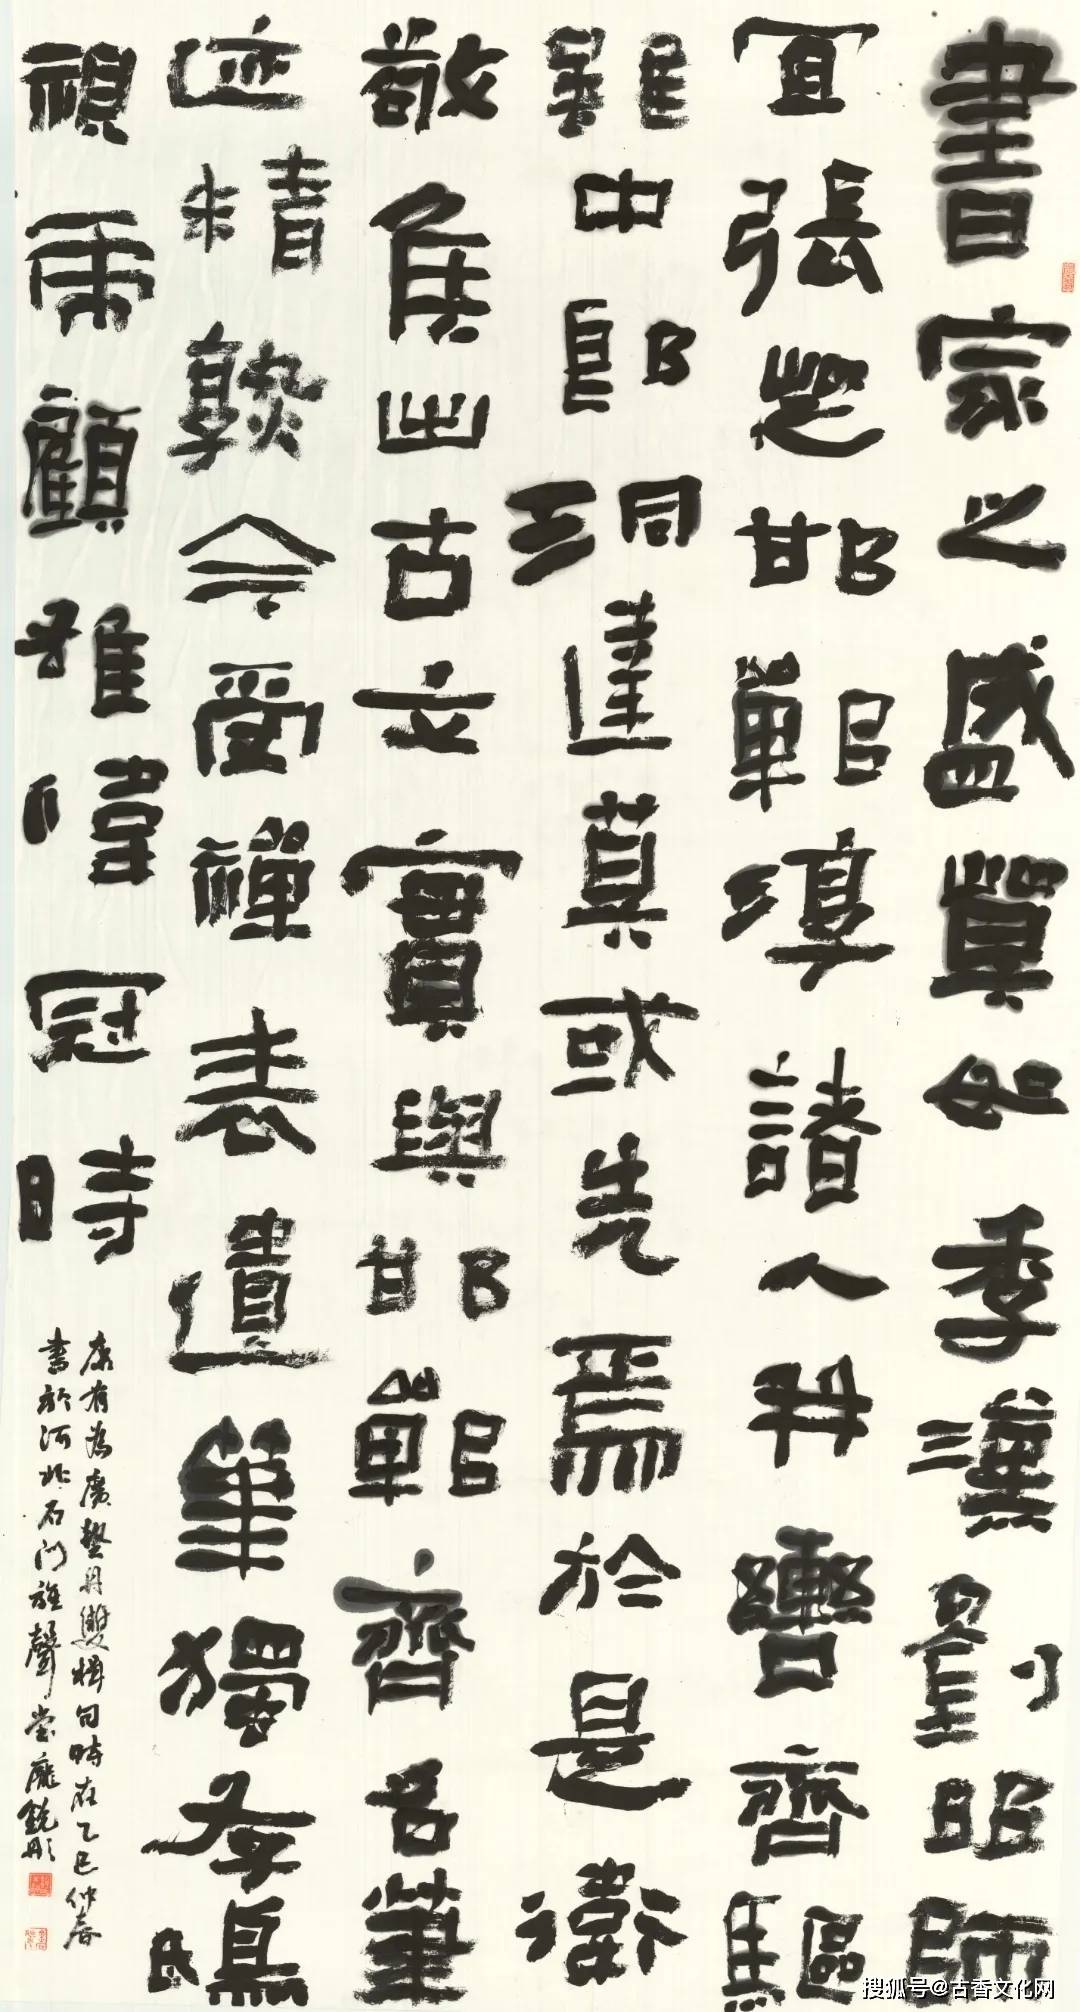 書家之盛莫如季漢劉昭師
宜張芝邯鄲淳諸人並轡齊驅
雖中郎洞達莫或先焉於是衛
敬侯出古文實與邯鄲齊名筆
迹精熟今受禪表遺筆獨存鴟
視虎顧雄偉冠時
康有為廣藝舟雙楫句時在乙巳仲春
書於河北石门雅馨堂龐銑彤
搜狐号@古香文化网